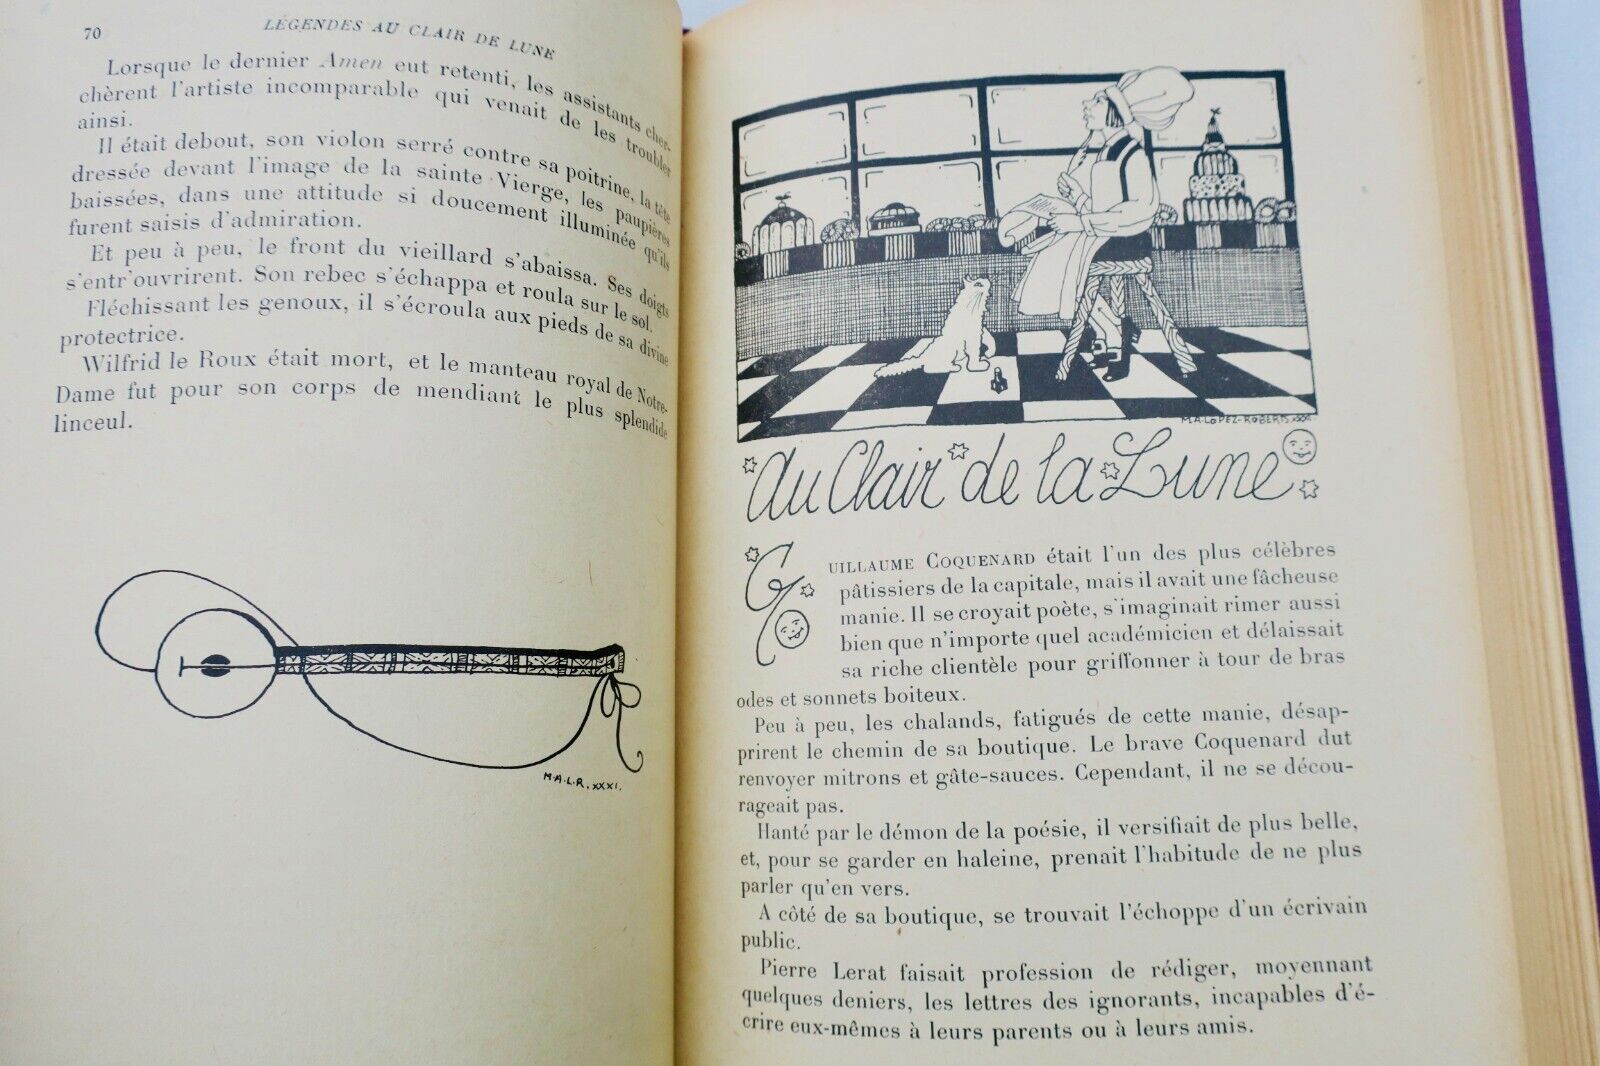 70
LÉGENDES AU CLAIR DE LUNE
Lorsque le dernier Amen eut retenti, les assistants cher-
chèrent l'artiste incomparable qui venait de les troubler
ainsi.
Il était debout, son violon serré contre sa poitrine, la tête
dressée devant l'image de la sainte Vierge, les paupières
baissées, dans une attitude si doucement illuminée qu'ils
furent saisis d'admiration.
Et peu à peu, le front du vieillard s'abaissa. Ses doigts
s'entr'ouvrirent. Son rebec s'échappa et roula sur le sol.
Fléchissant les genoux, il s'écroula aux pieds de sa divine
protectrice.
Wilfrid le Roux était mort, et le manteau royal de Notre-
Dame fut pour son corps de mendiant le plus splendide
linceul.
M.A.L.R. XXXI.
M.A. LOPEZ-ROBERTS XXXI
Au Clair de la Lune
GUILLAUME COQUENARD était l'un des plus célèbres
pâtissiers de la capitale, mais il avait une fâcheuse
manie. Il se croyait poète, s'imaginait rimer aussi
bien que n'importe quel académicien et délaissait
sa riche clientèle pour griffonner à tour de bras
odes et sonnets boiteux.
Peu à peu, les chalands, fatigués de cette manie, désap-
prirent le chemin de sa boutique. Le brave Coquenard dut
renvoyer mitrons et gâte-sauces. Cependant, il ne se décou-
rageait pas.
Hanté par le démon de la poésie, il versifiait de plus belle,
et, pour se garder en haleine, prenait l'habitude de ne plus
parler qu'en vers.
A côté de sa boutique, se trouvait l'échoppe d'un écrivain
public.
Pierre Lerat faisait profession de rédiger, moyennant
quelques deniers, les lettres des ignorants, incapables d'é-
crire eux-mêmes à leurs parents ou à leurs amis.